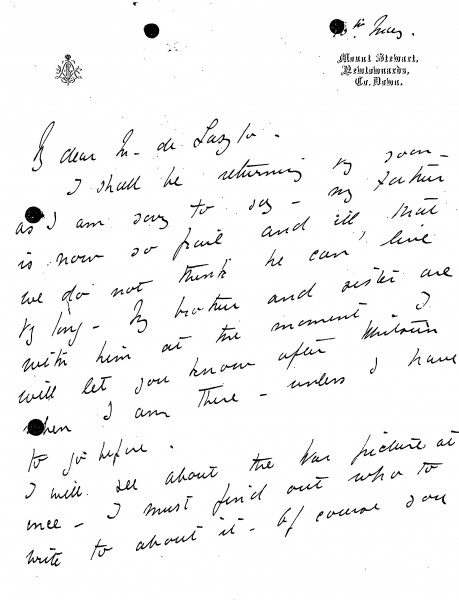 th May.
Mount Stewart,
Newtownards,
Co. Down.
My dear Mr de Laszlo -
I shall be returning vy soon -
as I am sorry to say - my father
is now so frail and ill, that
we do not think he can live
vy long - My brother and sister are
with him at the moment I
will let you know after Whitsun
when I am there - unless I have
to go before.
I will see about the War picture at
once - I must find out who to
write to about it - Of course you